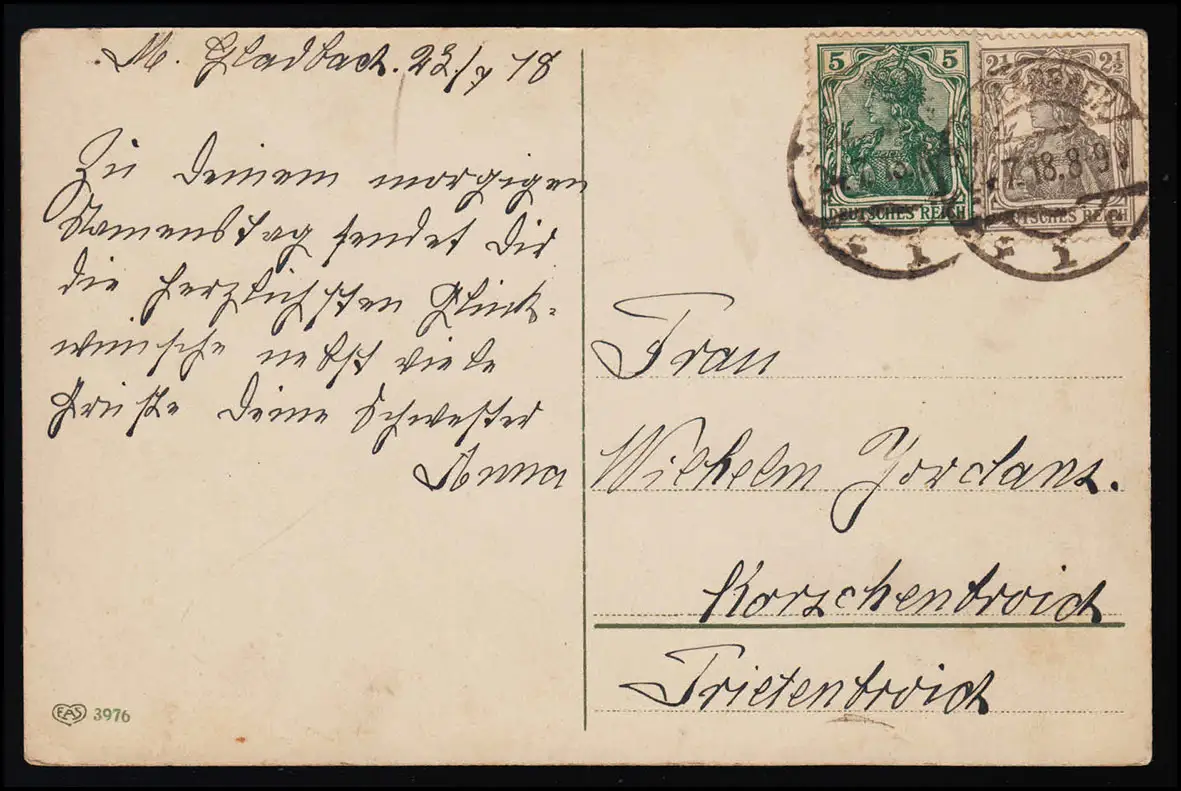 M. Gladbach. 23/7 18
Zu deinem morgigen
Namenstag sendet Dir
die herzlichsten Glück-
wünsche nebst viele
Grüße Deine Schwester
Anna
5 5
DEUTSCHES REICH
2½ 2½
DEUTSCHES REICH
7.18.8-9
Frau
Wilhelm Jordans.
Korschenbroich
Trietenbroich
EAS 3976